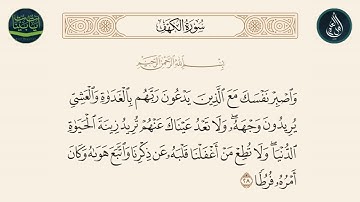 سُورَةُ الكَهْفِ
بِسْمِ اللَّهِ الرَّحْمَٰنِ الرَّحِيمِ
وَاصْبِرْ نَفْسَكَ مَعَ الَّذِينَ يَدْعُونَ رَبَّهُم بِالْغَدَوٰةِ وَالْعَشِيِّ
يُرِيدُونَ وَجْهَهُۥ ۖ وَلَا تَعْدُ عَيْنَاكَ عَنْهُمْ تُرِيدُ زِينَةَ الْحَيَوٰةِ
الدُّنْيَا ۖ وَلَا تُطِعْ مَنْ أَغْفَلْنَا قَلْبَهُۥ عَن ذِكْرِنَا وَاتَّبَعَ هَوَىٰهُ وَكَانَ
أَمْرُهُۥ فُرُطًا ٢٨